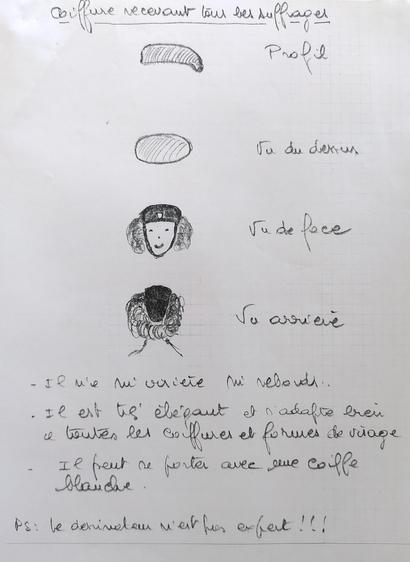 Coiffure recevant tous les suffrages
Profil
Vu du dessus
Vu de face
Vu arrière
- Il n'a ni visière ni rebords..
- Il est très élégant et s'adapte bien
à toutes les coiffures et formes de visage
- Il peut se porter avec une coiffe
blanche.
PS: Le dessinateur n'est pas expert !!!